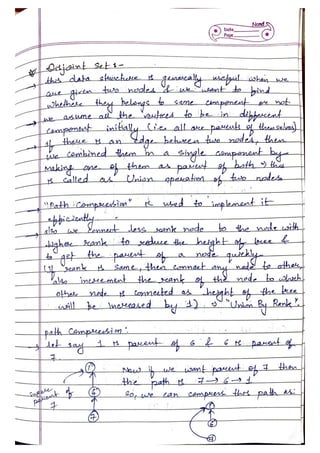 Date
Page
Disjoint Set :-
this data structure is generally useful when we
are given two nodes & we want to find
whether they belongs to same component or not
we assume all the vertices to be in different
component initially (i.e. all are parents of themselves)
If there is an edge between two nodes, then
we combined them in a single component by
making one of them as parent of both → this
is called as Union operation of two nodes
"Path Compression" is used to implement it
efficiently.
also we connect less rank node to the node with
higher rank to reduce the height of tree &
to get the parent of a node quickly.
(If rank is same, then connect any node to other,
also increment the rank of the node to which
other node is connected as height of the tree
will be increased by 1) → "Union By Rank".
Path Compression :
let say 1 is parent of 6 & 6 is parent of
7.
Now if we want parent of 7 then
the path is 7 → 6 → 1
parent of
7
So, we can compress this path as:
1
6
7